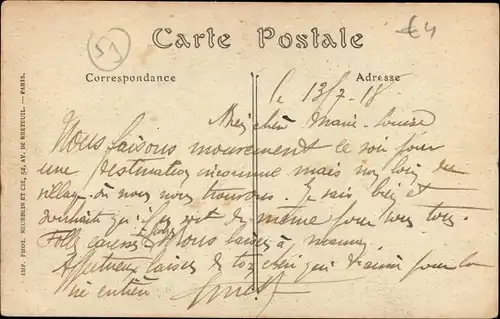 51
€4
Carte Postale
Correspondance
Adresse
le 13/7-18
Ma chère Marie-Louise
Nous faisons mouvement ce soir pour
une destination inconnue mais non loin du
village où nous nous trouvons. Je vais bien et
souhaite qu'il en soit de même pour vous tous.
Folles caresses
Affectueux baisers de ton chéri qui t'aime pour la
vie entière
IMP. PHOT. NEURDEIN ET CIE, 52, AV. DE BRETEUIL. — PARIS.